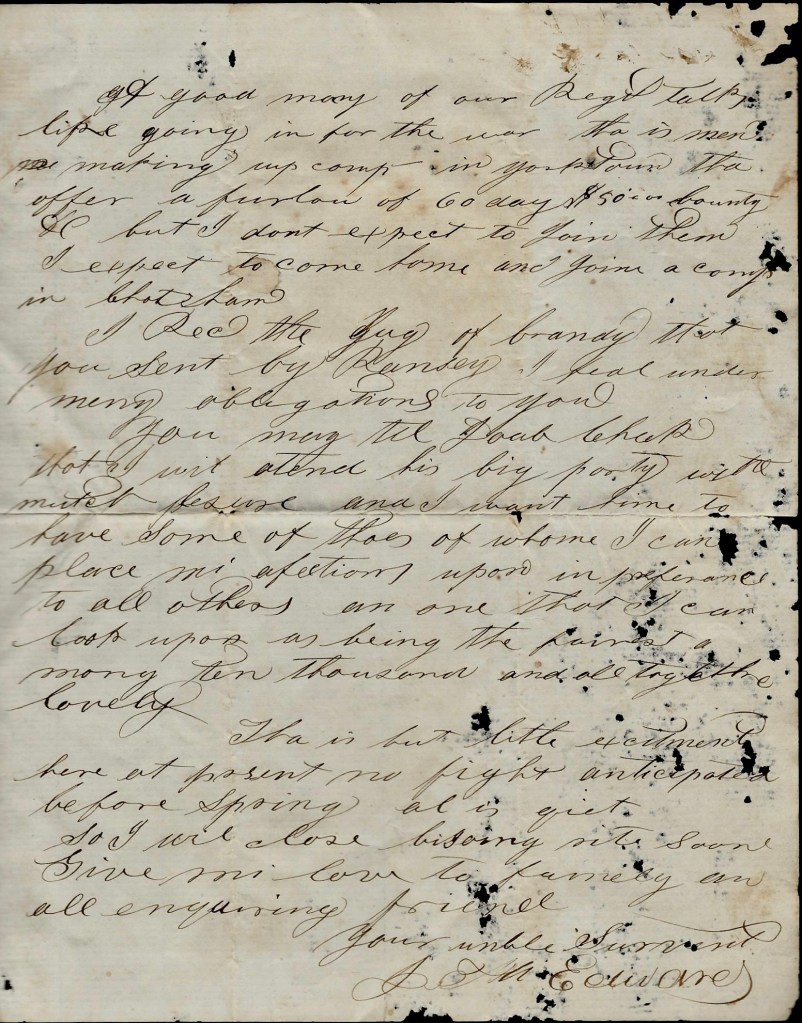 A good many of our Regt talk
like going in for the war tha is men
making up comp in york Town tha
offer a furlow of 60 day $50 bounty
&C but I dont expect to Join them
I expect to come home and Joine a comp
in Chatham
I Recd the Jug of brandy that
you sent by Ramsey I feal under
meny obligations to you
You may tel Cheek
that I wil atend his big party with
mutch plesure and I want hime to
have Some of thoes of whome I can
place mi afections upon in preferance
to all others an one that I can
look upon as being the fairest a
mong ten thousand and all togethe
lovely
Tha is but litle excitment
here at present no fight anticipated
before Spring al is qiet
so I wil close bisaing rite Soone
Give mi love to famiely an
all enquiring friend
Your unble Survent
Edwards